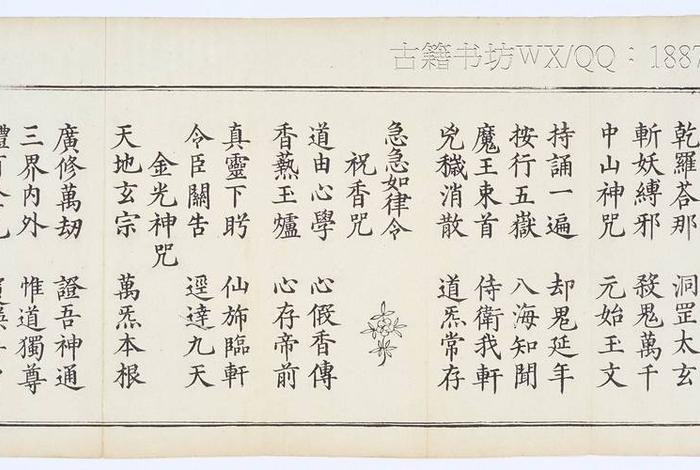 古籍书坊WX/QQ：1887
乾羅荅那 洞罡太玄
斬妖縛邪 殺鬼萬千
中山神咒 元始玉文
持誦一遍 却鬼延年
按行五嶽 八海知聞
魔王束首 侍衛我軒
兇穢消散 道炁常存
急急如律令
祝香咒
道由心學 心假香傳
香爇玉爐 心存帝前
真靈下盻 仙旆臨軒
令臣關告 逕達九天
金光神咒
天地玄宗 萬炁本根
廣修萬劫 證吾神通
三界内外 惟道獨尊